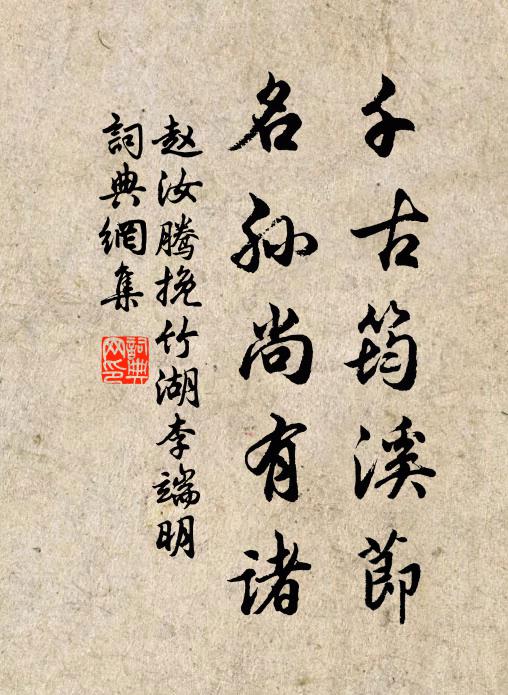 千古筠溪節
名孙尚有诸
赵汝腾挽竹湖李端明
詞典網集
詞典網印